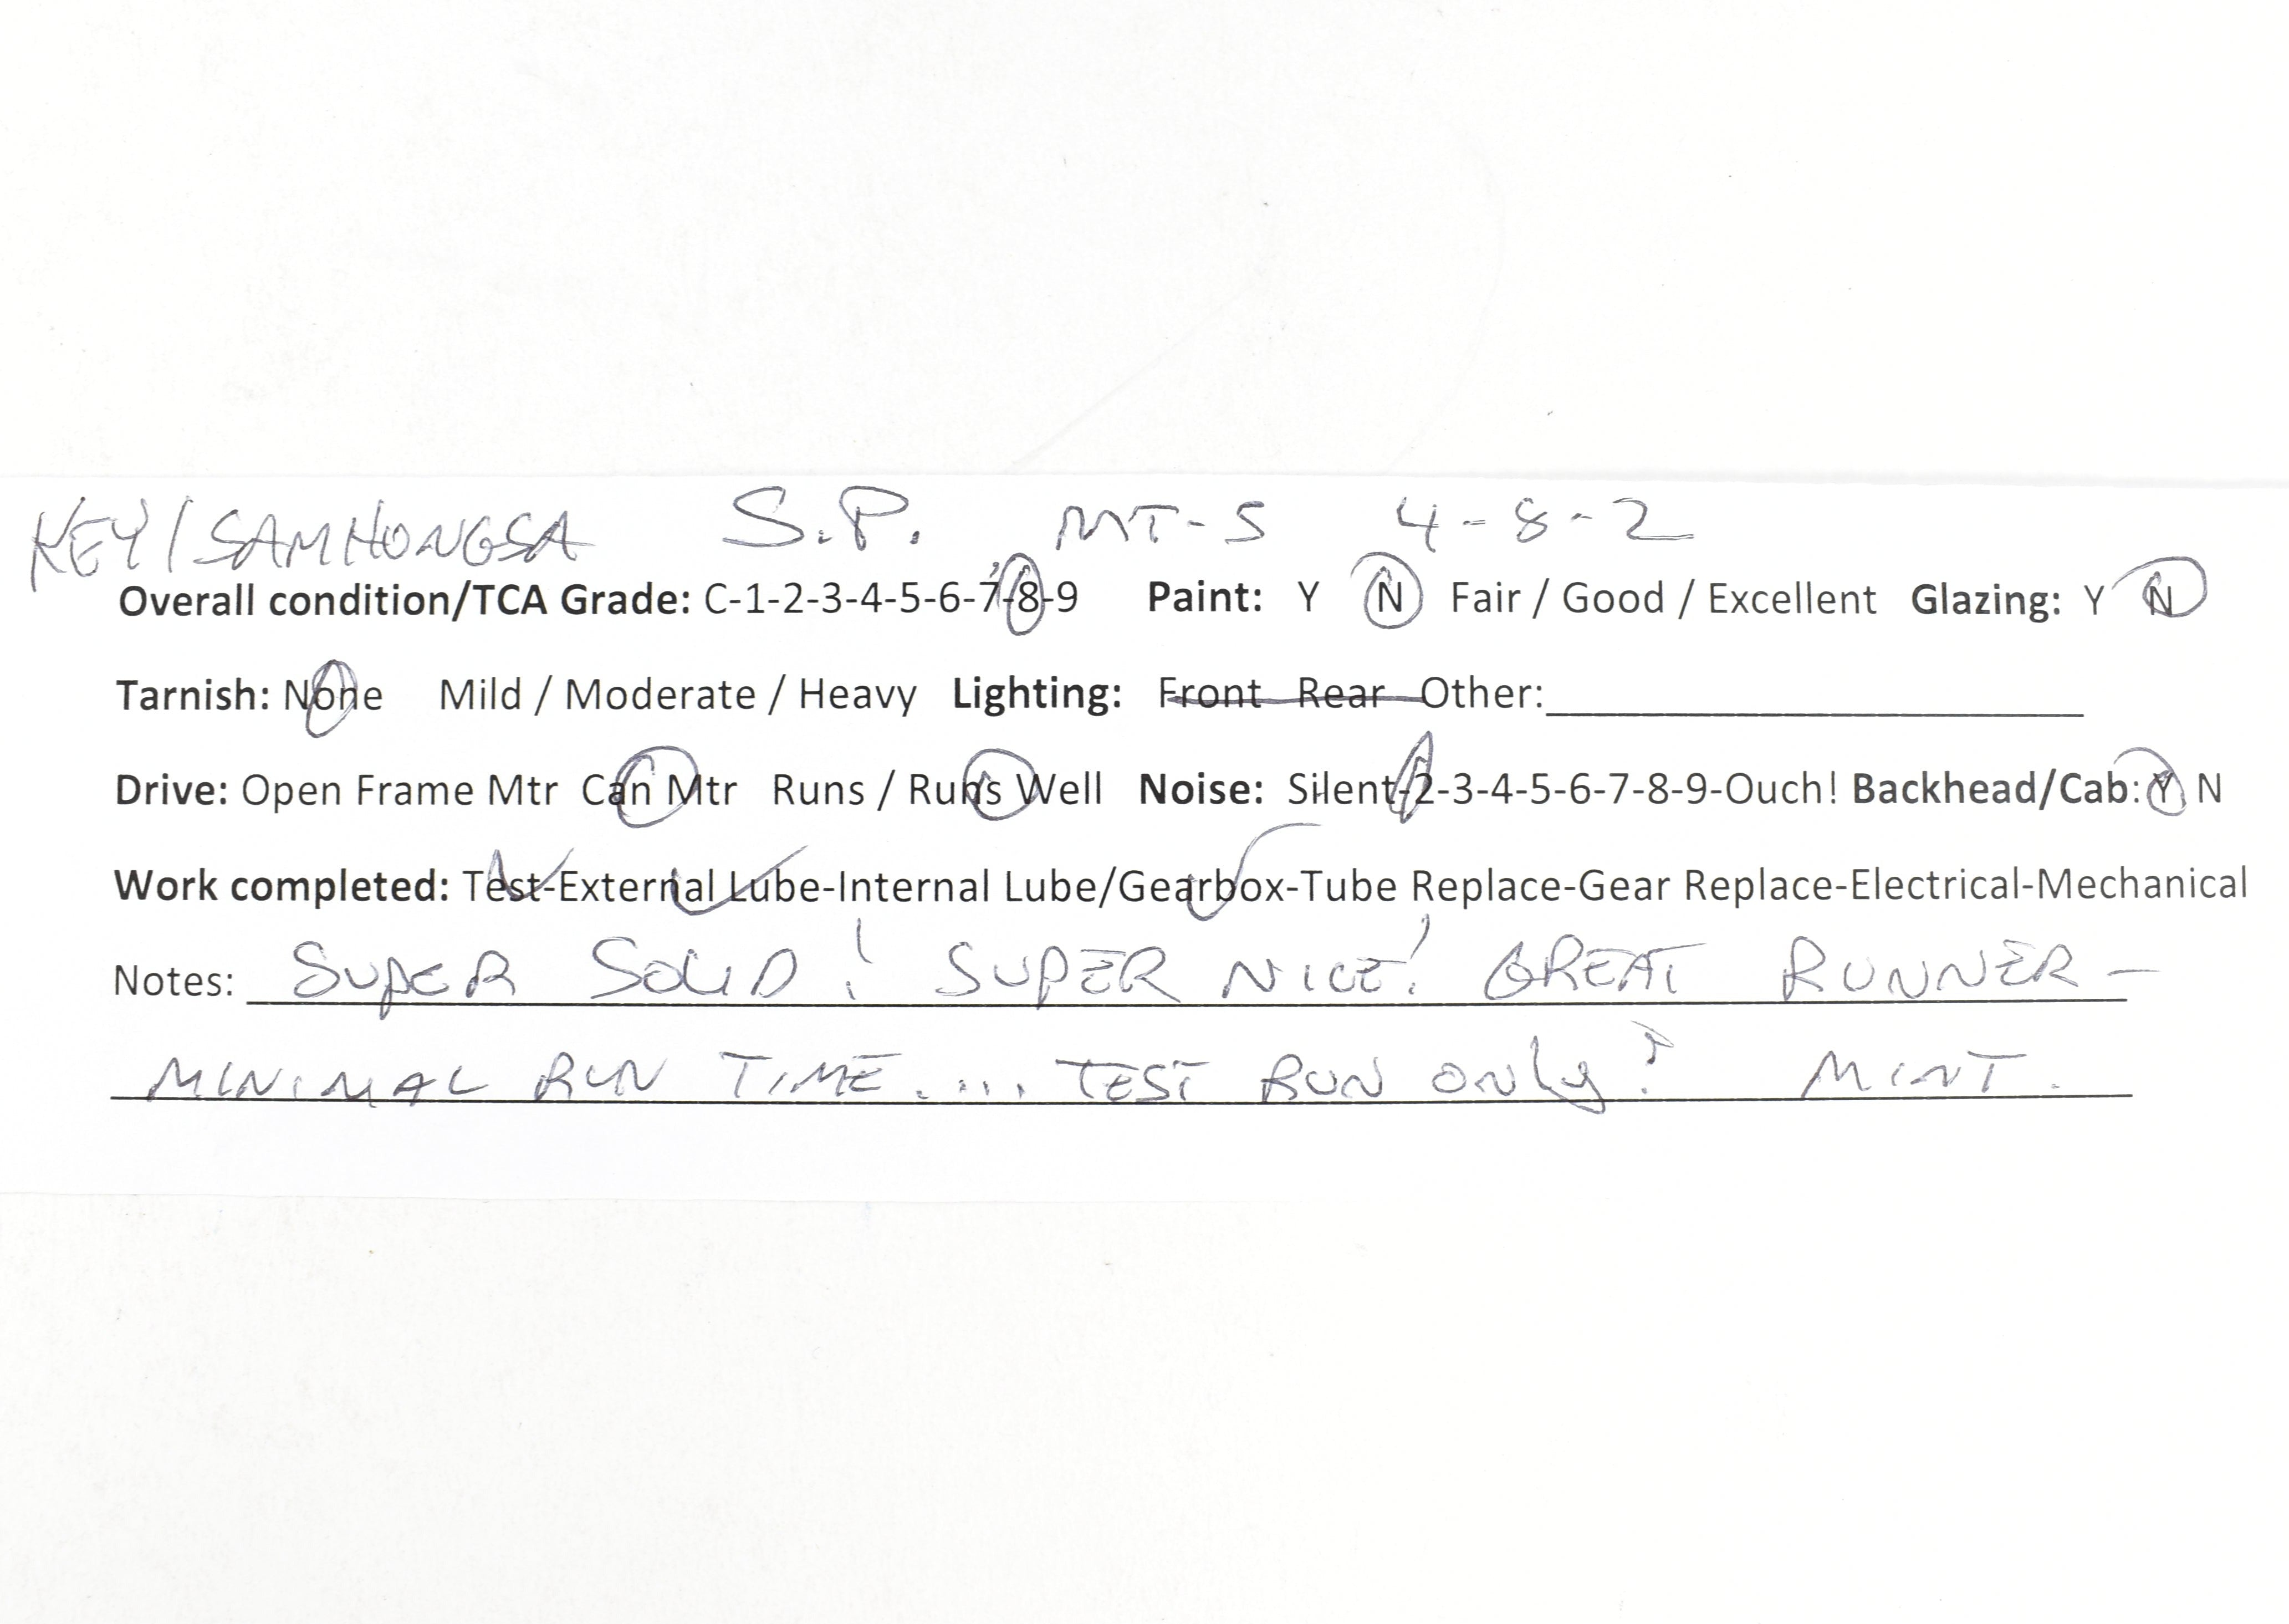 KEY/SAMHONGSA S.P. MT-5 4-8-2
Overall condition/TCA Grade: C-1-2-3-4-5-6-7-8-9 Paint: Y N Fair / Good / Excellent Glazing: Y N
Tarnish: None Mild / Moderate / Heavy Lighting: Front Rear Other:
Drive: Open Frame Mtr Can Mtr Runs / Runs Well Noise: Silent-2-3-4-5-6-7-8-9-Ouch! Backhead/Cab: Y N
Work completed: Test-External Lube-Internal Lube/Gearbox-Tube Replace-Gear Replace-Electrical-Mechanical
Notes: SUPER SOLID! SUPER NICE! GREAT RUNNER -
MINIMAL RUN TIME.... TEST RUN ONLY? MINT.